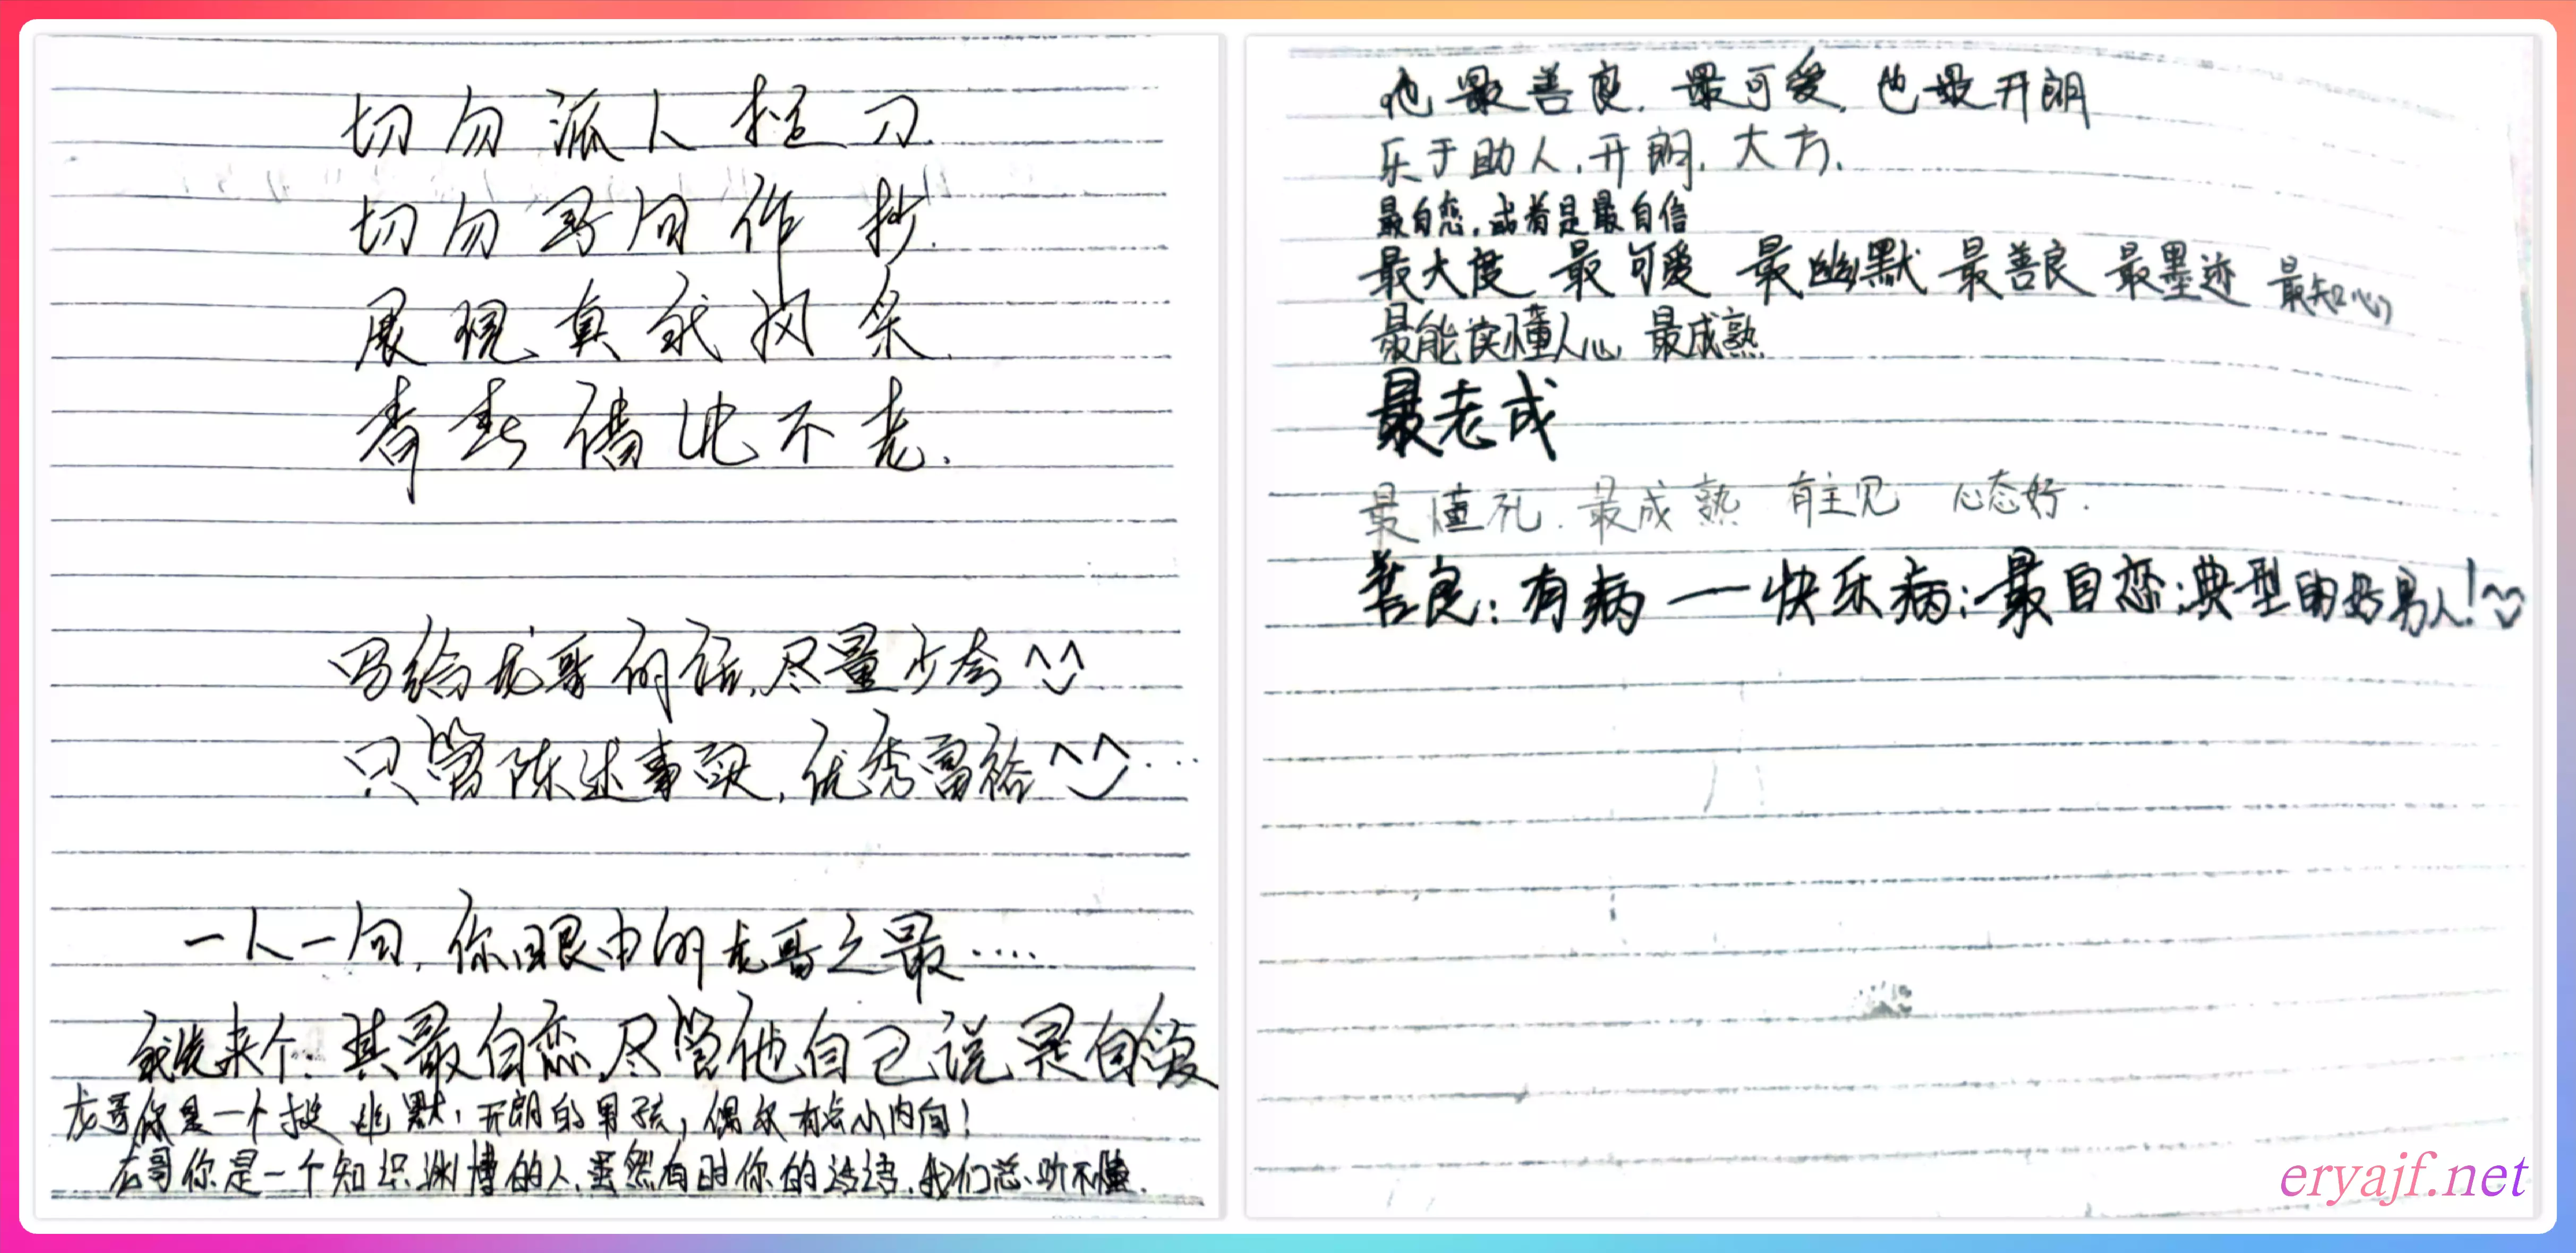 切勿派人捉刀.
切勿哥同作抄.
展现真我风采.
青春借此不老.
写给龙哥的话,尽量少夸^^
只管陈述事实,优秀富裕^^...
一人一句,你眼中的龙哥之最....
我先来个:其最自恋,尽管他自己说是自爱
龙哥你是一个挺幽默,开朗的男孩,偶尔有点小内向!
龙哥你是一个知识渊博的人,虽然有时你的话语,我们总听不懂.
他最善良.最可爱.也最开朗
乐于助人.开朗.大方.
最自恋.或者是最自信
最大度 最可爱 最幽默 最善良 最墨迹 最知心
最能读懂人心 最成熟
最老成
最懂礼.最成熟 有主见 心态好.
善良;有病—快乐病;最自恋;典型的好男人!
eryajf.net